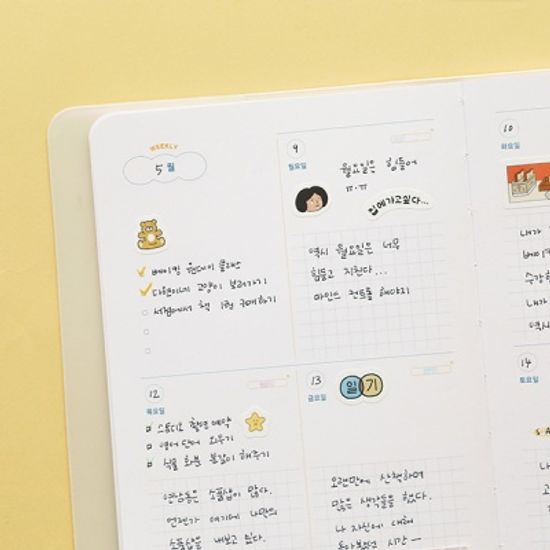 WEEKLY
5월
베이킹 원데이 클래스
다현이네 고양이 보러가기
서점에서 책 1권 구매하기
9
월요일
월요일은 힘들어
ㅠ.ㅠ
집에가고싶다...
역시 월요일은 너무
힘들고 지친다...
마인드 컨트롤 해야지
10
화요일
내가
베이커
수강하
내가
역시
12
목요일
스튜디오 촬영 예약
영어 단어 외우기
식물 화분 분갈이 해주기
연남동은 소품샵이 많다.
언젠가 여기에 나만의
소품샵을 내보고 싶다.
13
금요일
일기
오랜만에 산책하며
많은 생각들을 했다.
나 자신에 대해
돌아봤던 시간
14
토요일